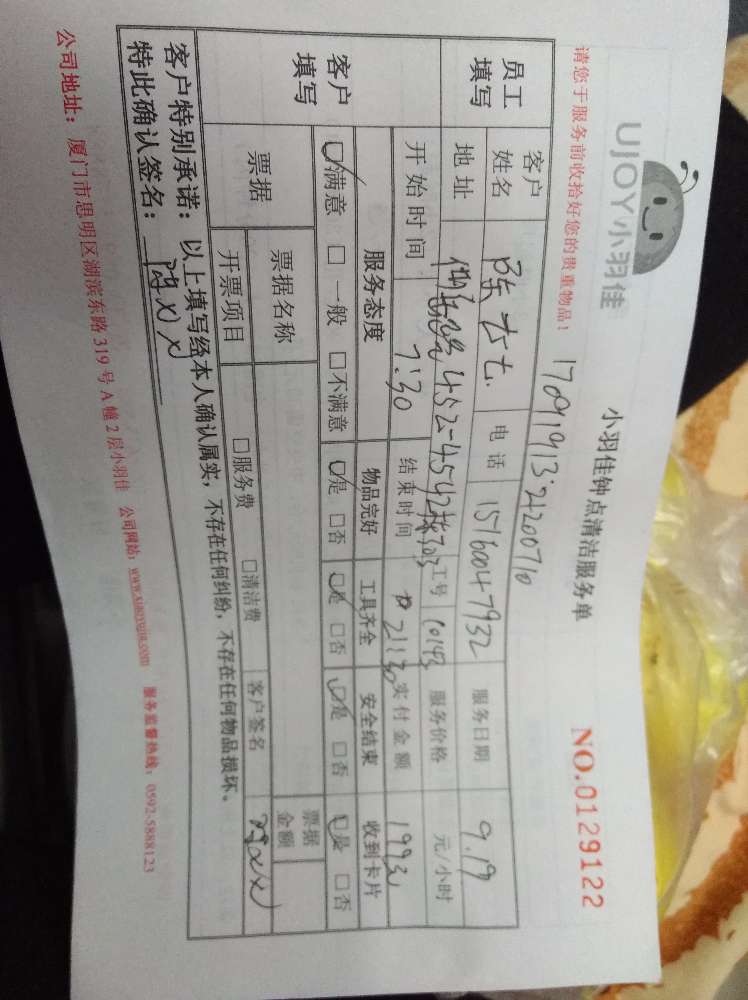 UJOY小羽佳
小羽佳钟点清洁服务单
NO.0129122
请您于服务前收拾好您的贵重物品！
员工填写
客户姓名
电话 15160047932
服务日期 9.19
地址
工号 10143
服务价格 元/小时
开始时间 7:30
结束时间
实付金额 199元
客户填写
服务态度 物品完好 工具齐全 安全结束 收到卡片
满意 □ 一般 □ 不满意 是 □ 否 是 □ 否 是 □ 否 是 □ 否
票据
票据名称
票据金额
开票项目 □ 服务费 □ 清洁费 客户签名
客户特别承诺：以上填写经本人确认属实，不存在任何纠纷，不存在任何物品损坏。
特此确认签名：
公司地址：厦门市思明区湖滨东路 319 号 A 幢 2 层小羽佳 公司网站：www.xiaoyujia.com 服务监督热线：0592-5888123